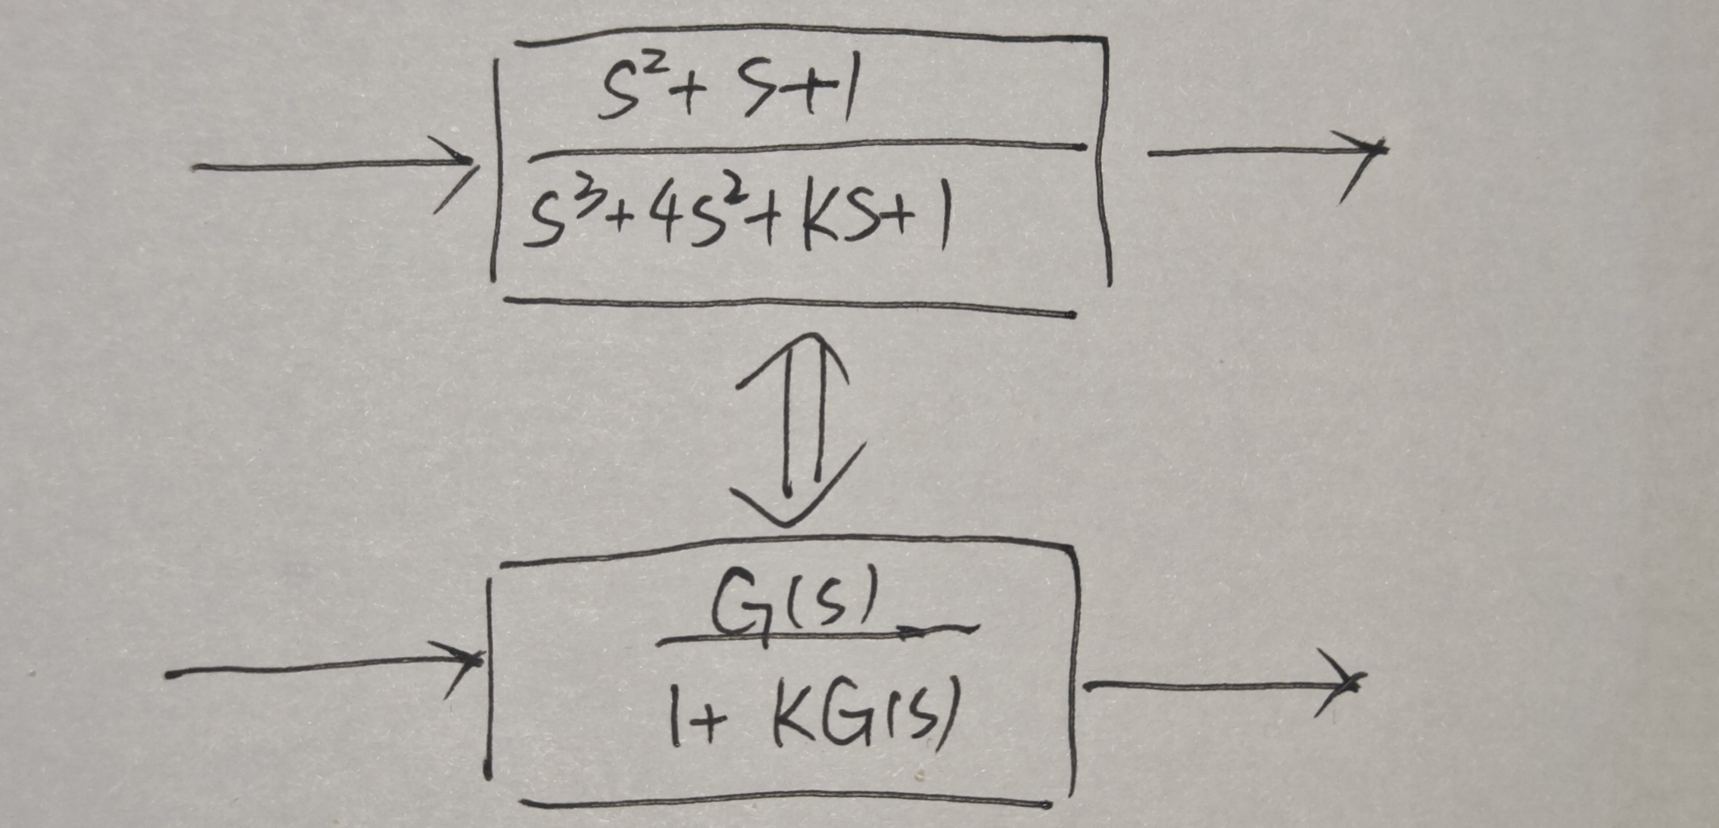 S²+ S+1
S³+4S²+KS+1
G(S)
1+ KG(S)